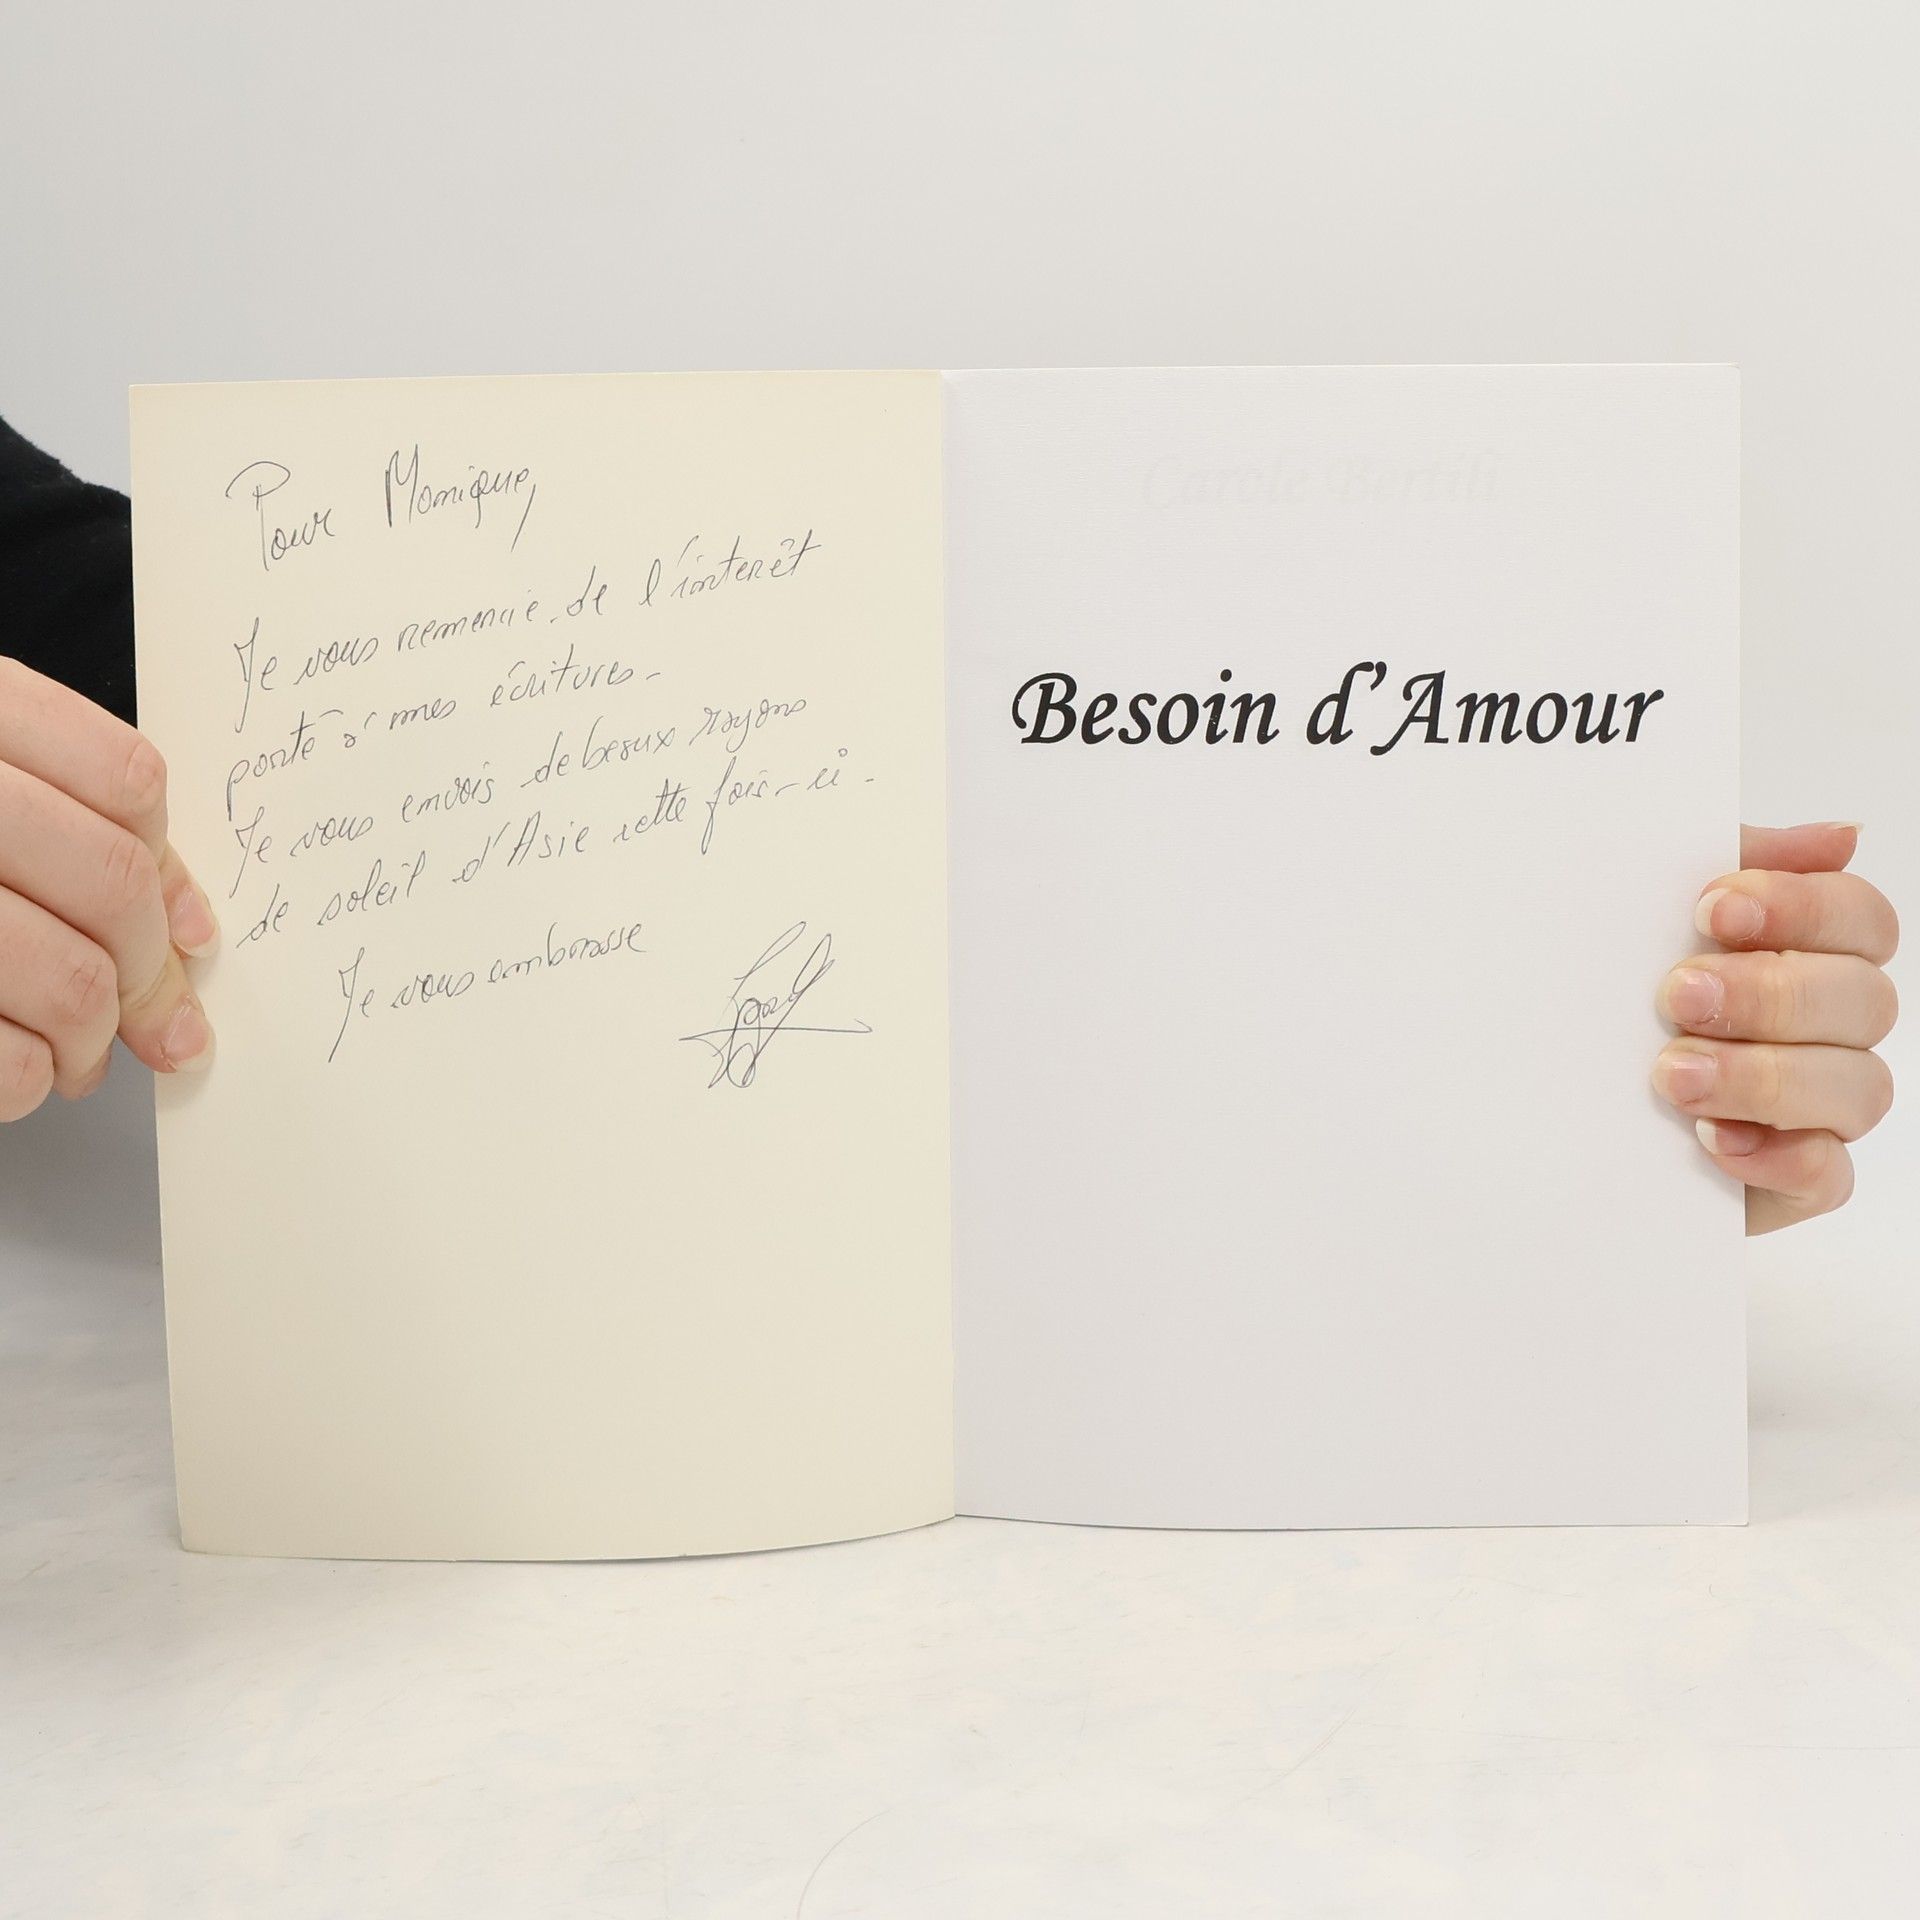 Pour Monique,
Je vous remercie de l'intérêt
porté à mes écritures.
Je vous envois de beaux rayons
de soleil d'Asie cette fois-ci.
Je vous embrasse
Besoin d'Amour